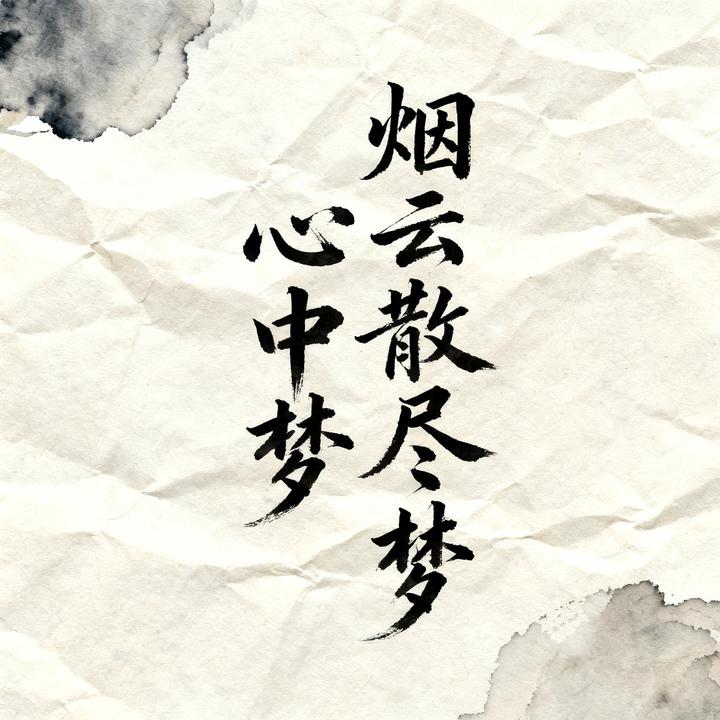 烟云散尽梦
心中梦